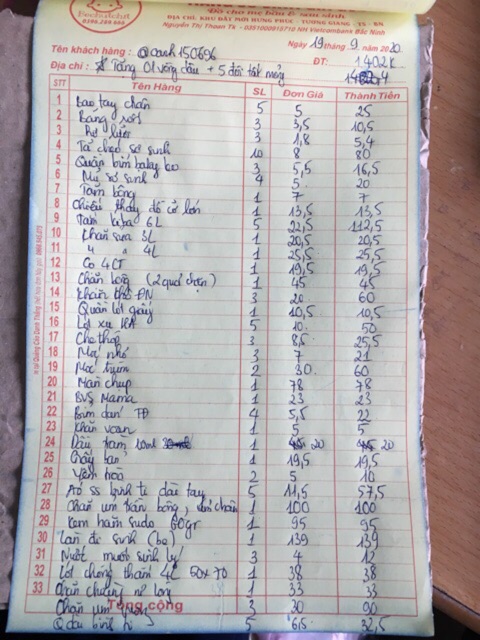 Bechutchut
0396.289.888
Đồ cho mẹ bầu & sơ sinh
ĐỊA CHỈ: KHU ĐẤT MỚI HƯNG PHÚC - TƯƠNG GIANG - TS - BN
Nguyễn Thị Thoan Tk - 0351000915710 NH Vietcombank Bắc Ninh
Ngày 19 tháng 9 năm 2020
Tên khách hàng: @oanh150696 ĐT: 1402K
Địa chỉ: Tặng 01 vòng dâu + 5 đôi tất mỏng
STT Tên Hàng SL Đơn Giá Thành Tiền
1 Bao tay chân 5 5 25
2 Băng rốn 3 3,5 10,5
3 Rơ lưỡi 3 1,8 5,4
4 Tã chéo sơ sinh 10 8 80
5 Quần bỉm 3 5,5 16,5
6 Mũ sơ sinh 4 5 20
7 Tăm bông 1 7 7
8 Chiếu thay đồ cỡ lớn 1 13,5 13,5
9 6L 5 22,5 112,5
10 Khăn sữa 3L 1 20,5 20,5
11 " " 4L 1 25,5 25,5
12 Co 4CT 1 19,5 19,5
13 Chăn lông (2 quả chọn) 1 45 45
14 Khăn thô ĐN 3 20 60
15 Quần lót giấy 1 10,5 10,5
16 Lót xu KA 5 10 50
17 Che thóp 3 8,5 25,5
18 Mác nhỏ 3 7 21
19 2 30 60
20 Màn chụp 1 78 78
21 BVS Mama 1 23 23
22 Bỉm dán TĐ 4 5,5 22
23 Khăn voan 1 5 5
24 Dầu tràm 1 20 20
25 Giấy 1 19,5 19,5
26 Yếm hoa 2 5 10
27 Áo ss bình ti dài tay 5 11,5 57,5
28 Chăn ủm trần bông, 1 100 100
29 Kem hăm sudo 60gr 1 95 95
30 Làn đi sinh (bé) 1 139 139
31 Nước muối sinh lý 3 4 12
32 Lót chống thấm 4L 50x70 1 38 38
33 1 33 33
Tổng cộng
Chăn ủm 3 30 90
Q dài bình ti 5 6,5 32,5